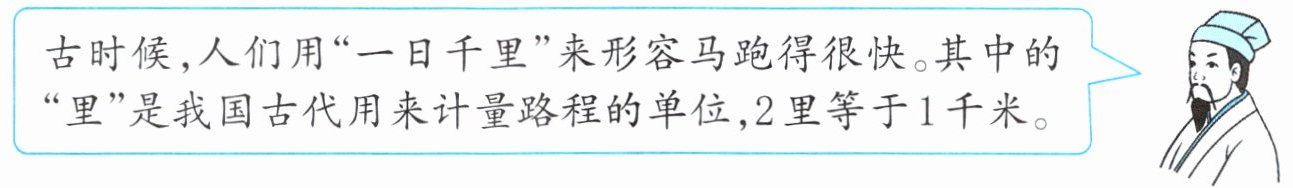 古时候,人们用“一日千里”来形容马跑得很快。其中的
“里”是我国古代用来计量路程的单位,2里等于1千米。